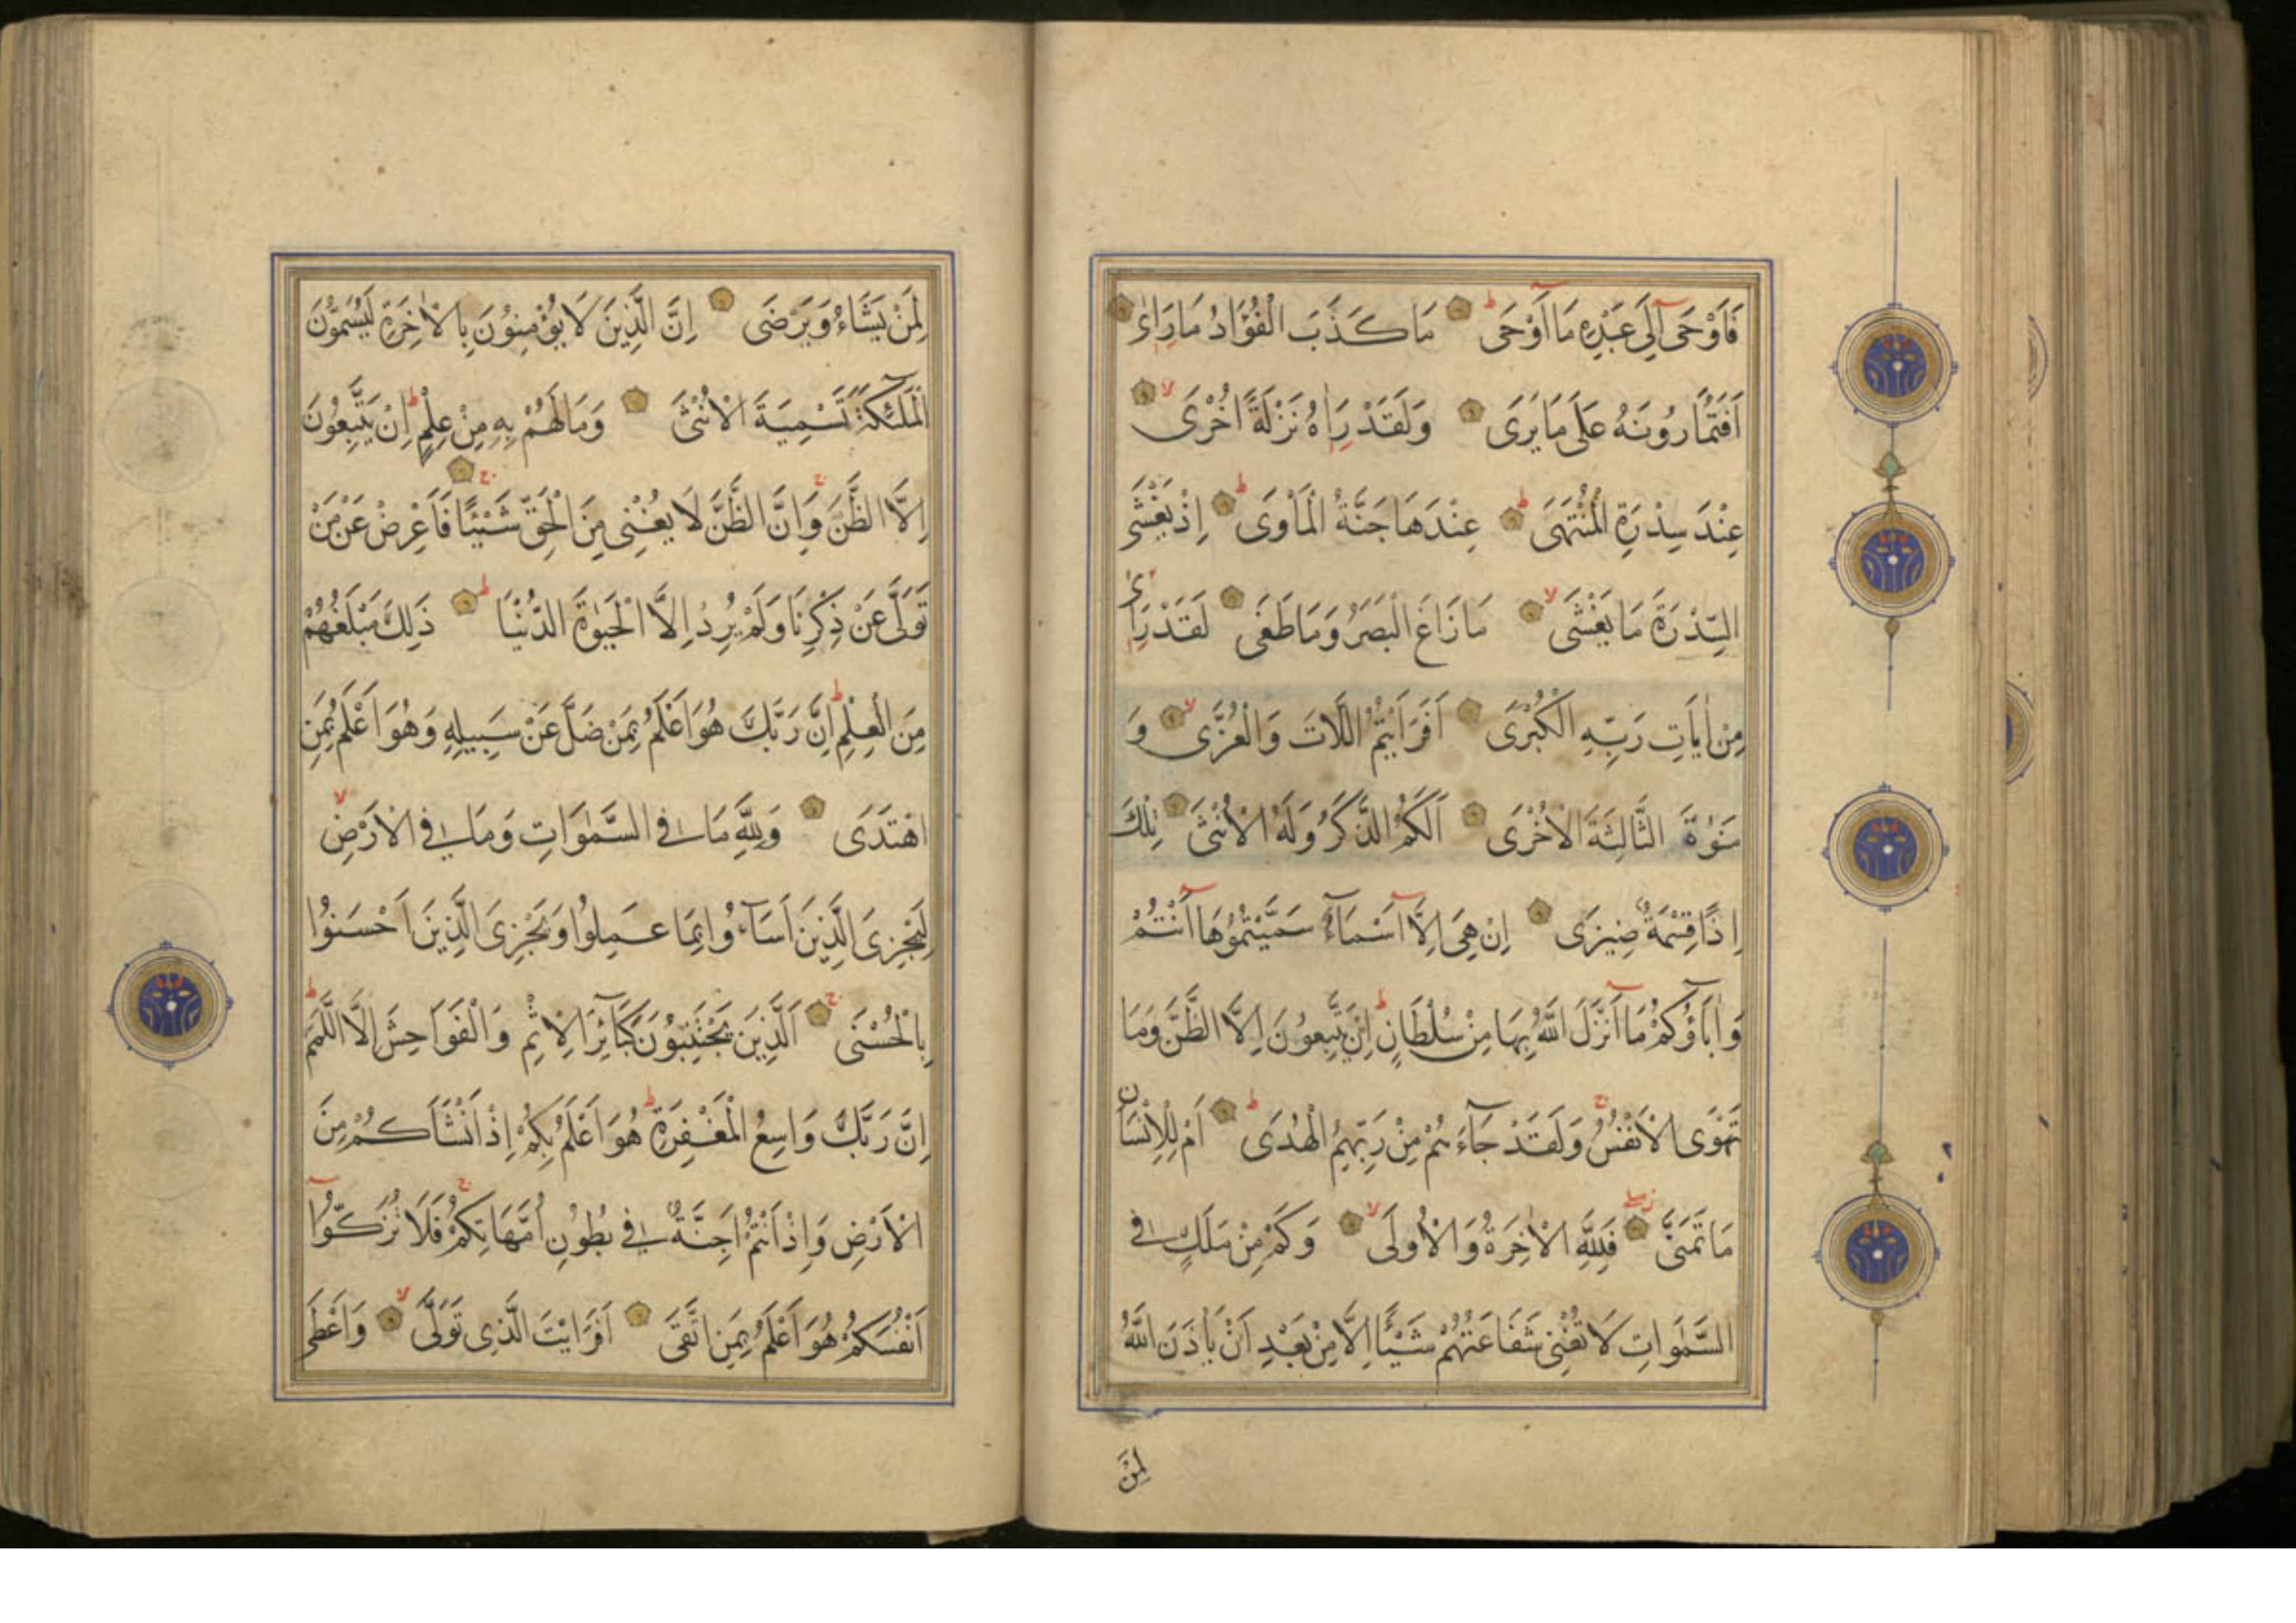 فَاَوْحَى اِلَى عَبْدِهِ مَا اَوْحَى ط مَا كَذَبَ الْفُؤَادُ مَا رَاٰى
اَفَتُمَارُونَهُ عَلَى مَا يَرَى وَلَقَدْ رَاٰهُ نَزْلَةً اُخْرَى لا
عِنْدَ سِدْرَةِ الْمُنْتَهَى ط عِنْدَهَا جَنَّةُ الْمَأْوَى ط اِذْ يَغْشَى
السِّدْرَةَ مَا يَغْشَى لا مَا زَاغَ الْبَصَرُ وَمَا طَغَى لَقَدْ رَاٰى
مِنْ اٰيَاتِ رَبِّهِ الْكُبْرَى اَفَرَاَيْتُمُ اللَّاتَ وَالْعُزَّى لا وَ
مَنٰوةَ الثَّالِثَةَ الْاُخْرَى اَلَكُمُ الذَّكَرُ وَلَهُ الْاُنْثَى تِلْكَ
اِذًا قِسْمَةٌ ضِيزَى اِنْ هِىَ اِلَّا اَسْمَاءٌ سَمَّيْتُمُوهَا اَنْتُمْ
وَاٰبَاؤُكُمْ مَا اَنْزَلَ اللّٰهُ بِهَا مِنْ سُلْطَانٍ ط اِنْ يَتَّبِعُونَ اِلَّا الظَّنَّ وَمَا
تَهْوَى الْاَنْفُسُ ج وَلَقَدْ جَاءَهُمْ مِنْ رَبِّهِمُ الْهُدَى ط اَمْ لِلْاِنْسَانِ
مَا تَمَنَّى فَلِلّٰهِ الْاٰخِرَةُ وَالْاُولَى لا وَكَمْ مِنْ مَلَكٍ فِى
السَّمٰوَاتِ لَا تُغْنِى شَفَاعَتُهُمْ شَيْئًا اِلَّا مِنْ بَعْدِ اَنْ يَأْذَنَ اللّٰهُ
لِمَنْ
لِمَنْ يَشَاءُ وَيَرْضَى اِنَّ الَّذِينَ لَا يُؤْمِنُونَ بِالْاٰخِرَةِ لَيُسَمُّونَ
الْمَلٰئِكَةَ تَسْمِيَةَ الْاُنْثَى وَمَا لَهُمْ بِهِ مِنْ عِلْمٍ ط اِنْ يَتَّبِعُونَ
اِلَّا الظَّنَّ ج وَاِنَّ الظَّنَّ لَا يُغْنِى مِنَ الْحَقِّ شَيْئًا ج فَاَعْرِضْ عَنْ مَنْ
تَوَلَّى عَنْ ذِكْرِنَا وَلَمْ يُرِدْ اِلَّا الْحَيٰوةَ الدُّنْيَا ط ذٰلِكَ مَبْلَغُهُمْ
مِنَ الْعِلْمِ ط اِنَّ رَبَّكَ هُوَ اَعْلَمُ بِمَنْ ضَلَّ عَنْ سَبِيلِهِ وَهُوَ اَعْلَمُ بِمَنِ
اهْتَدَى وَلِلّٰهِ مَا فِى السَّمٰوَاتِ وَمَا فِى الْاَرْضِ لا
لِيَجْزِىَ الَّذِينَ اَسَاءُوا بِمَا عَمِلُوا وَيَجْزِىَ الَّذِينَ اَحْسَنُوا
بِالْحُسْنَى ج اَلَّذِينَ يَجْتَنِبُونَ كَبَائِرَ الْاِثْمِ وَالْفَوَاحِشَ اِلَّا اللَّمَمَ ط
اِنَّ رَبَّكَ وَاسِعُ الْمَغْفِرَةِ ط هُوَ اَعْلَمُ بِكُمْ اِذْ اَنْشَاَكُمْ مِنَ
الْاَرْضِ وَاِذْ اَنْتُمْ اَجِنَّةٌ فِى بُطُونِ اُمَّهَاتِكُمْ ج فَلَا تُزَكُّوا
اَنْفُسَكُمْ هُوَ اَعْلَمُ بِمَنِ اتَّقَى اَفَرَاَيْتَ الَّذِى تَوَلَّى لا وَاَعْطَى